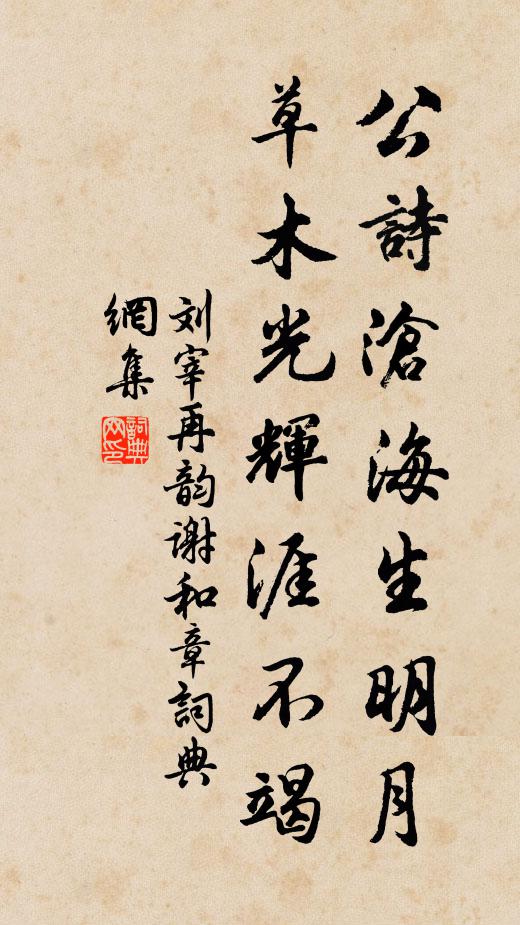 公詩滄海生明月
草木光輝涯不竭
刘宰再韵谢和章詞典
網集
詞典
网印